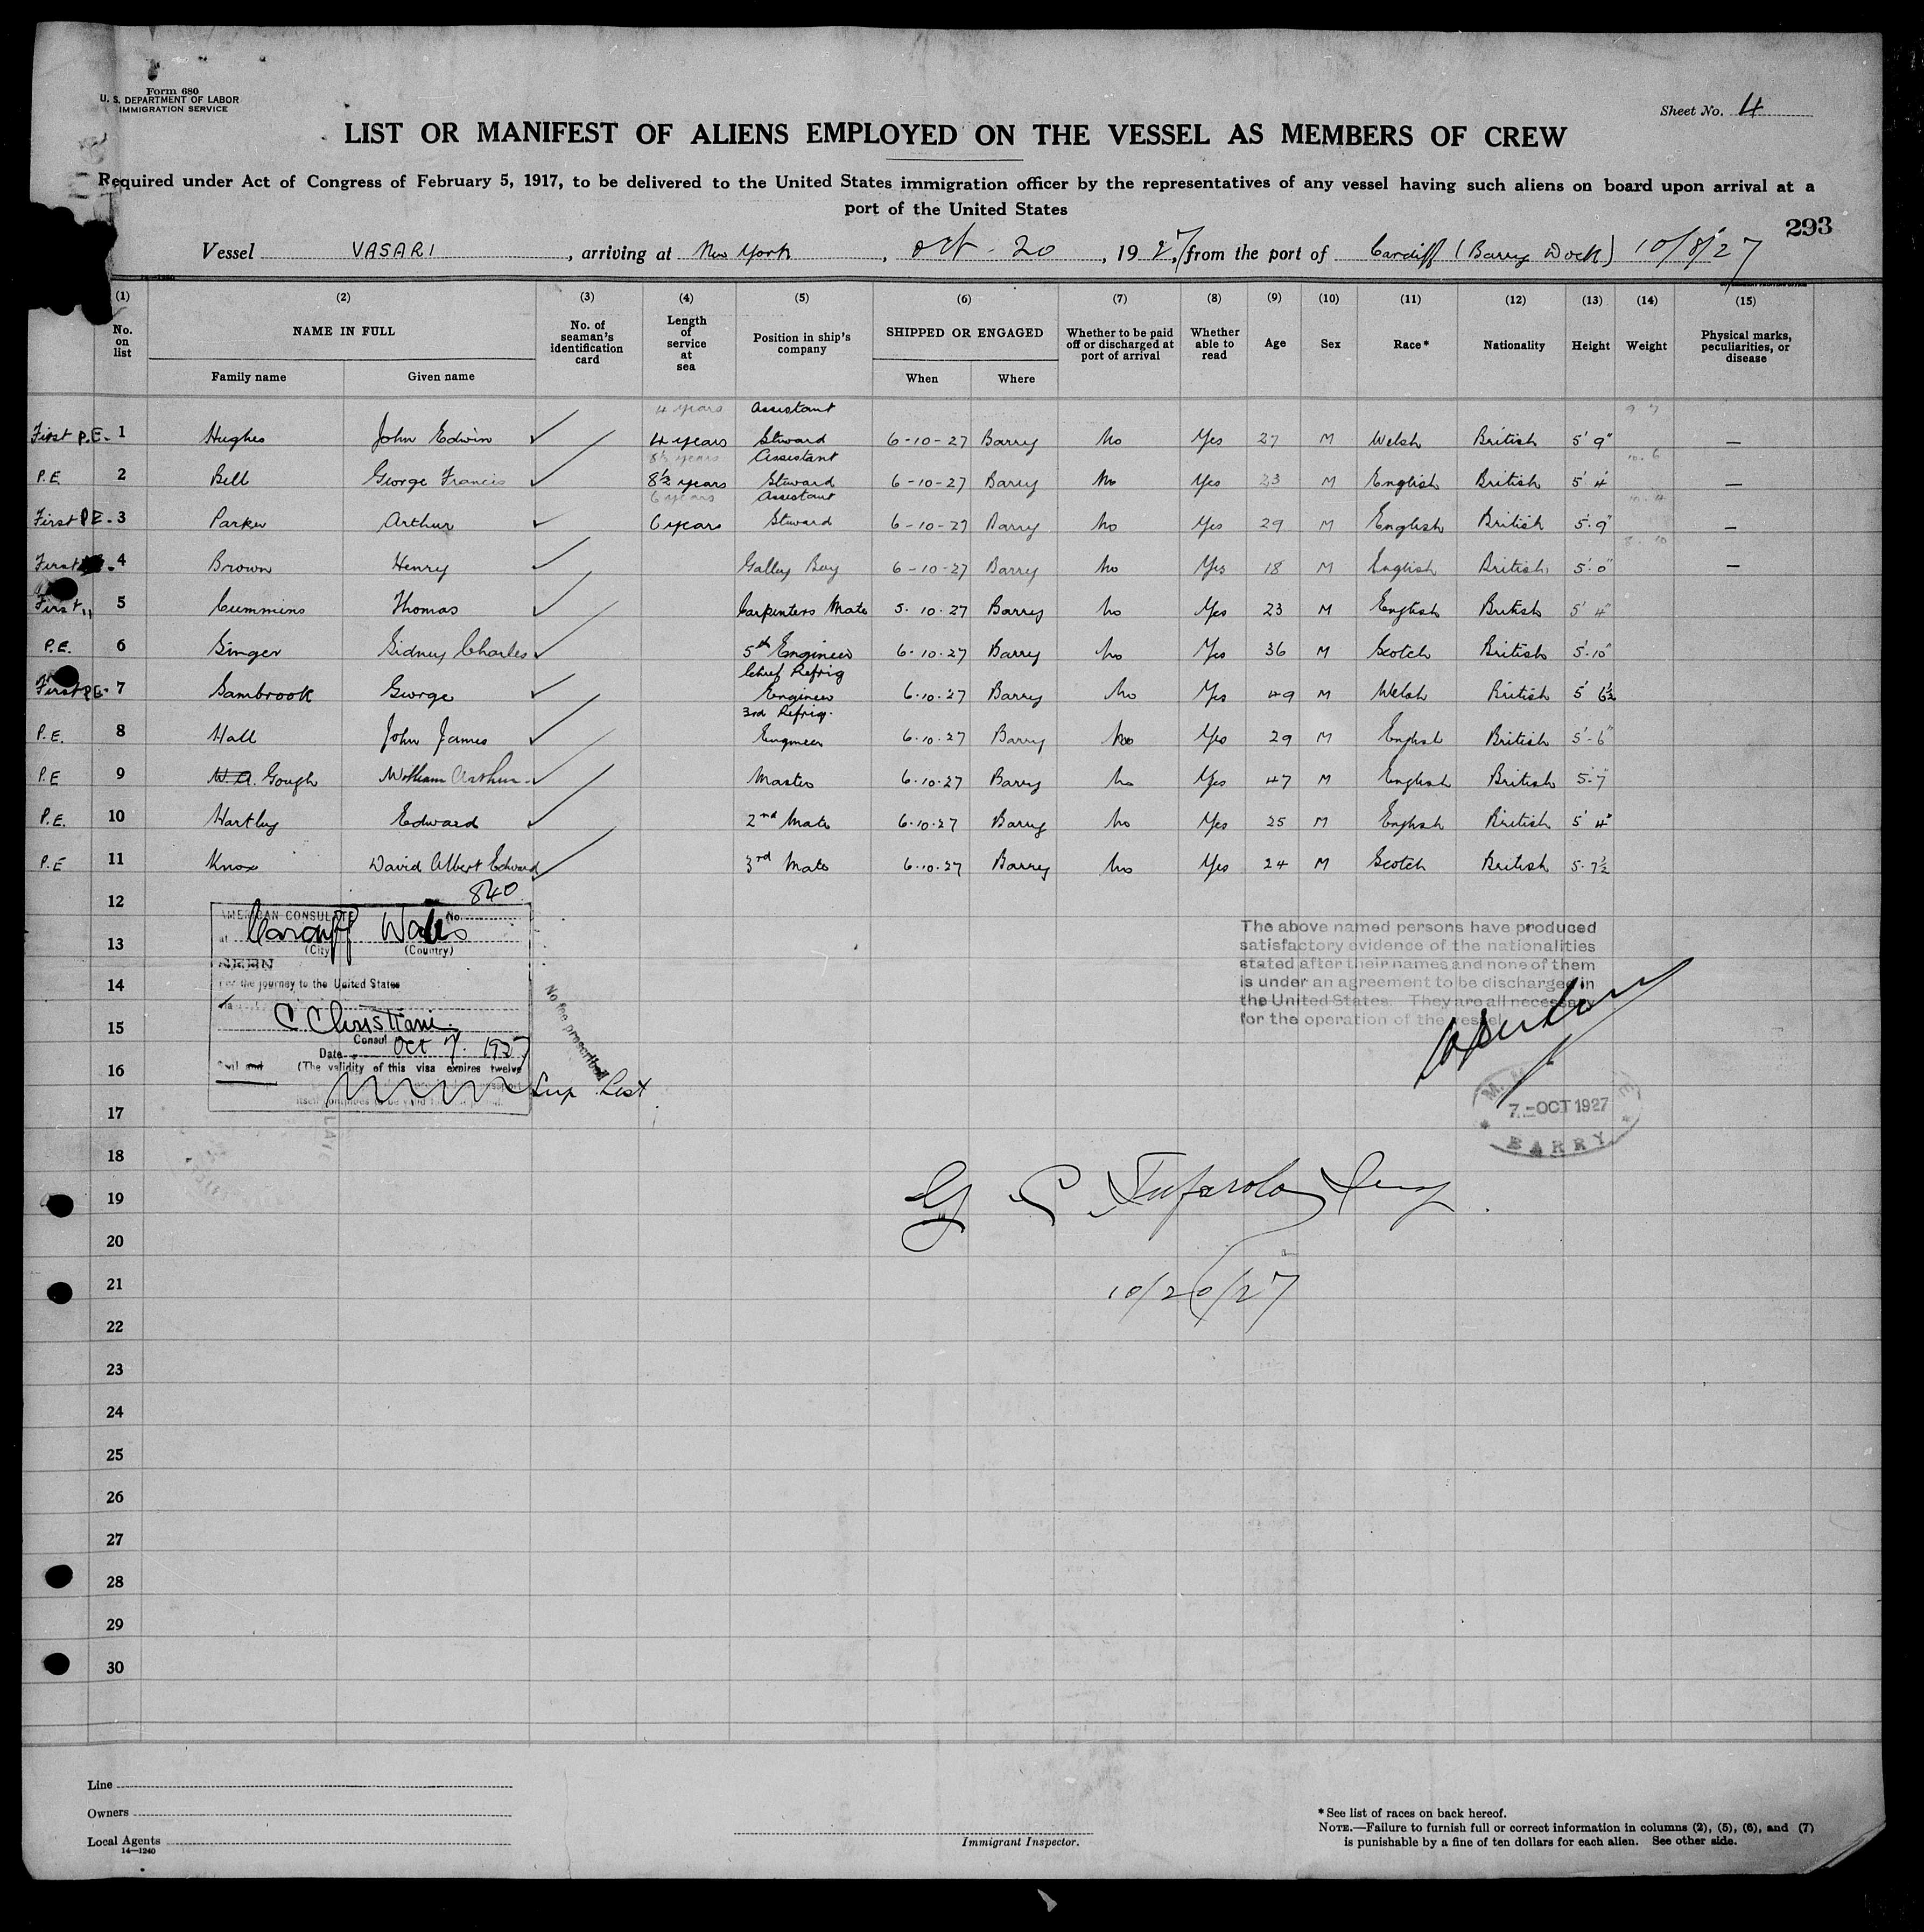 Form 680
U. S. DEPARTMENT OF LABOR
IMMIGRATION SERVICE
Sheet No. 4
LIST OR MANIFEST OF ALIENS EMPLOYED ON THE VESSEL AS MEMBERS OF CREW
Required under Act of Congress of February 5, 1917, to be delivered to the United States immigration officer by the representatives of any vessel having such aliens on board upon arrival at a
port of the United States
293
Vessel VASARI, arriving at New York, Oct - 20, 1927, from the port of Cardiff (Barry Dock) 10/8/27
(1) (2) (3) (4) (5) (6) (7) (8) (9) (10) (11) (12) (13) (14) (15)
No. on list NAME IN FULL No. of seaman's identification card Length of service at sea Position in ship's company SHIPPED OR ENGAGED Whether to be paid off or discharged at port of arrival Whether able to read Age Sex Race* Nationality Height Weight Physical marks, peculiarities, or disease
Family name Given name When Where
4 years Assistant
First P.E. 1 Hughes John Edwin ✓ 4 years Steward 6-10-27 Barry No Yes 27 M Welsh British 5' 9" —
8½ years Assistant
P.E. 2 Bell George Francis ✓ 8½ years Steward 6-10-27 Barry No Yes 23 M English British 5' 4" —
6 years Assistant
First P.E. 3 Parker Arthur ✓ 6 years Steward 6-10-27 Barry No Yes 29 M English British 5.9" —
First 4 Brown Henry ✓ Galley Boy 6-10-27 Barry No Yes 18 M English British 5.0" —
First " 5 Cummins Thomas ✓ Carpenters Mate 5.10.27 Barry No Yes 23 M English British 5' 4"
P.E. 6 Singer Sidney Charles ✓ 5th Engineer 6.10.27 Barry No Yes 36 M Scotch British 5.10"
Chief Refrig
First P.E. 7 Sambrook George ✓ Engineer 6.10.27 Barry No Yes 49 M Welsh British 5' 6½
3rd Refrig.
P.E. 8 Hall John James ✓ Engineer 6.10.27 Barry No Yes 29 M English British 5'-6"
P.E 9 W. A. Gough William Arthur ✓ Master 6.10.27 Barry No Yes 47 M English British 5.7"
P.E. 10 Hartley Edward ✓ 2nd Mate 6.10.27 Barry No Yes 25 M English British 5' 4"
P.E 11 Knox David Albert Edward ✓ 3rd Mate 6.10.27 Barry No Yes 24 M Scotch British 5.7½
12
840
AMERICAN CONSULATE No.
at Cardiff Wales
(City) (Country)
13
SEEN
For the journey to the United States
14
C Christiani
15
Consul
Date Oct 7. 1927
16
(The validity of this visa expires twelve
Sup List
No fee prescribed
The above named persons have produced
satisfactory evidence of the nationalities
stated after their names and none of them
is under an agreement to be discharged in
the United States. They are all necessary
for the operation of the vessel
7-OCT 1927
BARRY
17
18
19
20
21
10/20/27
22
23
24
25
26
27
28
29
30
Line
Owners
Local Agents
14—1240
Immigrant Inspector.
*See list of races on back hereof.
NOTE.—Failure to furnish full or correct information in columns (2), (5), (6), and (7)
is punishable by a fine of ten dollars for each alien. See other side.